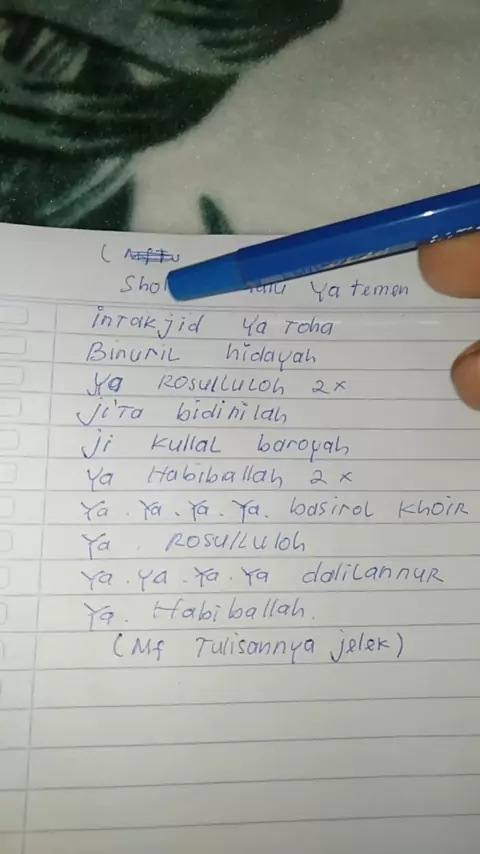 (
Shol ya temen
intakjid ya Toha
Binuril hidayah
Ya Rosullulloh 2x
ji'ta bidinilah
ji kullal baroyah
Ya Habiballah 2x
Ya. Ya. Ya. Ya. basirol khoir
Ya. Rosulluloh
Ya. Ya. Ya. Ya dalilannur
Ya. Habiballah.
(Mf Tulisannya jelek)